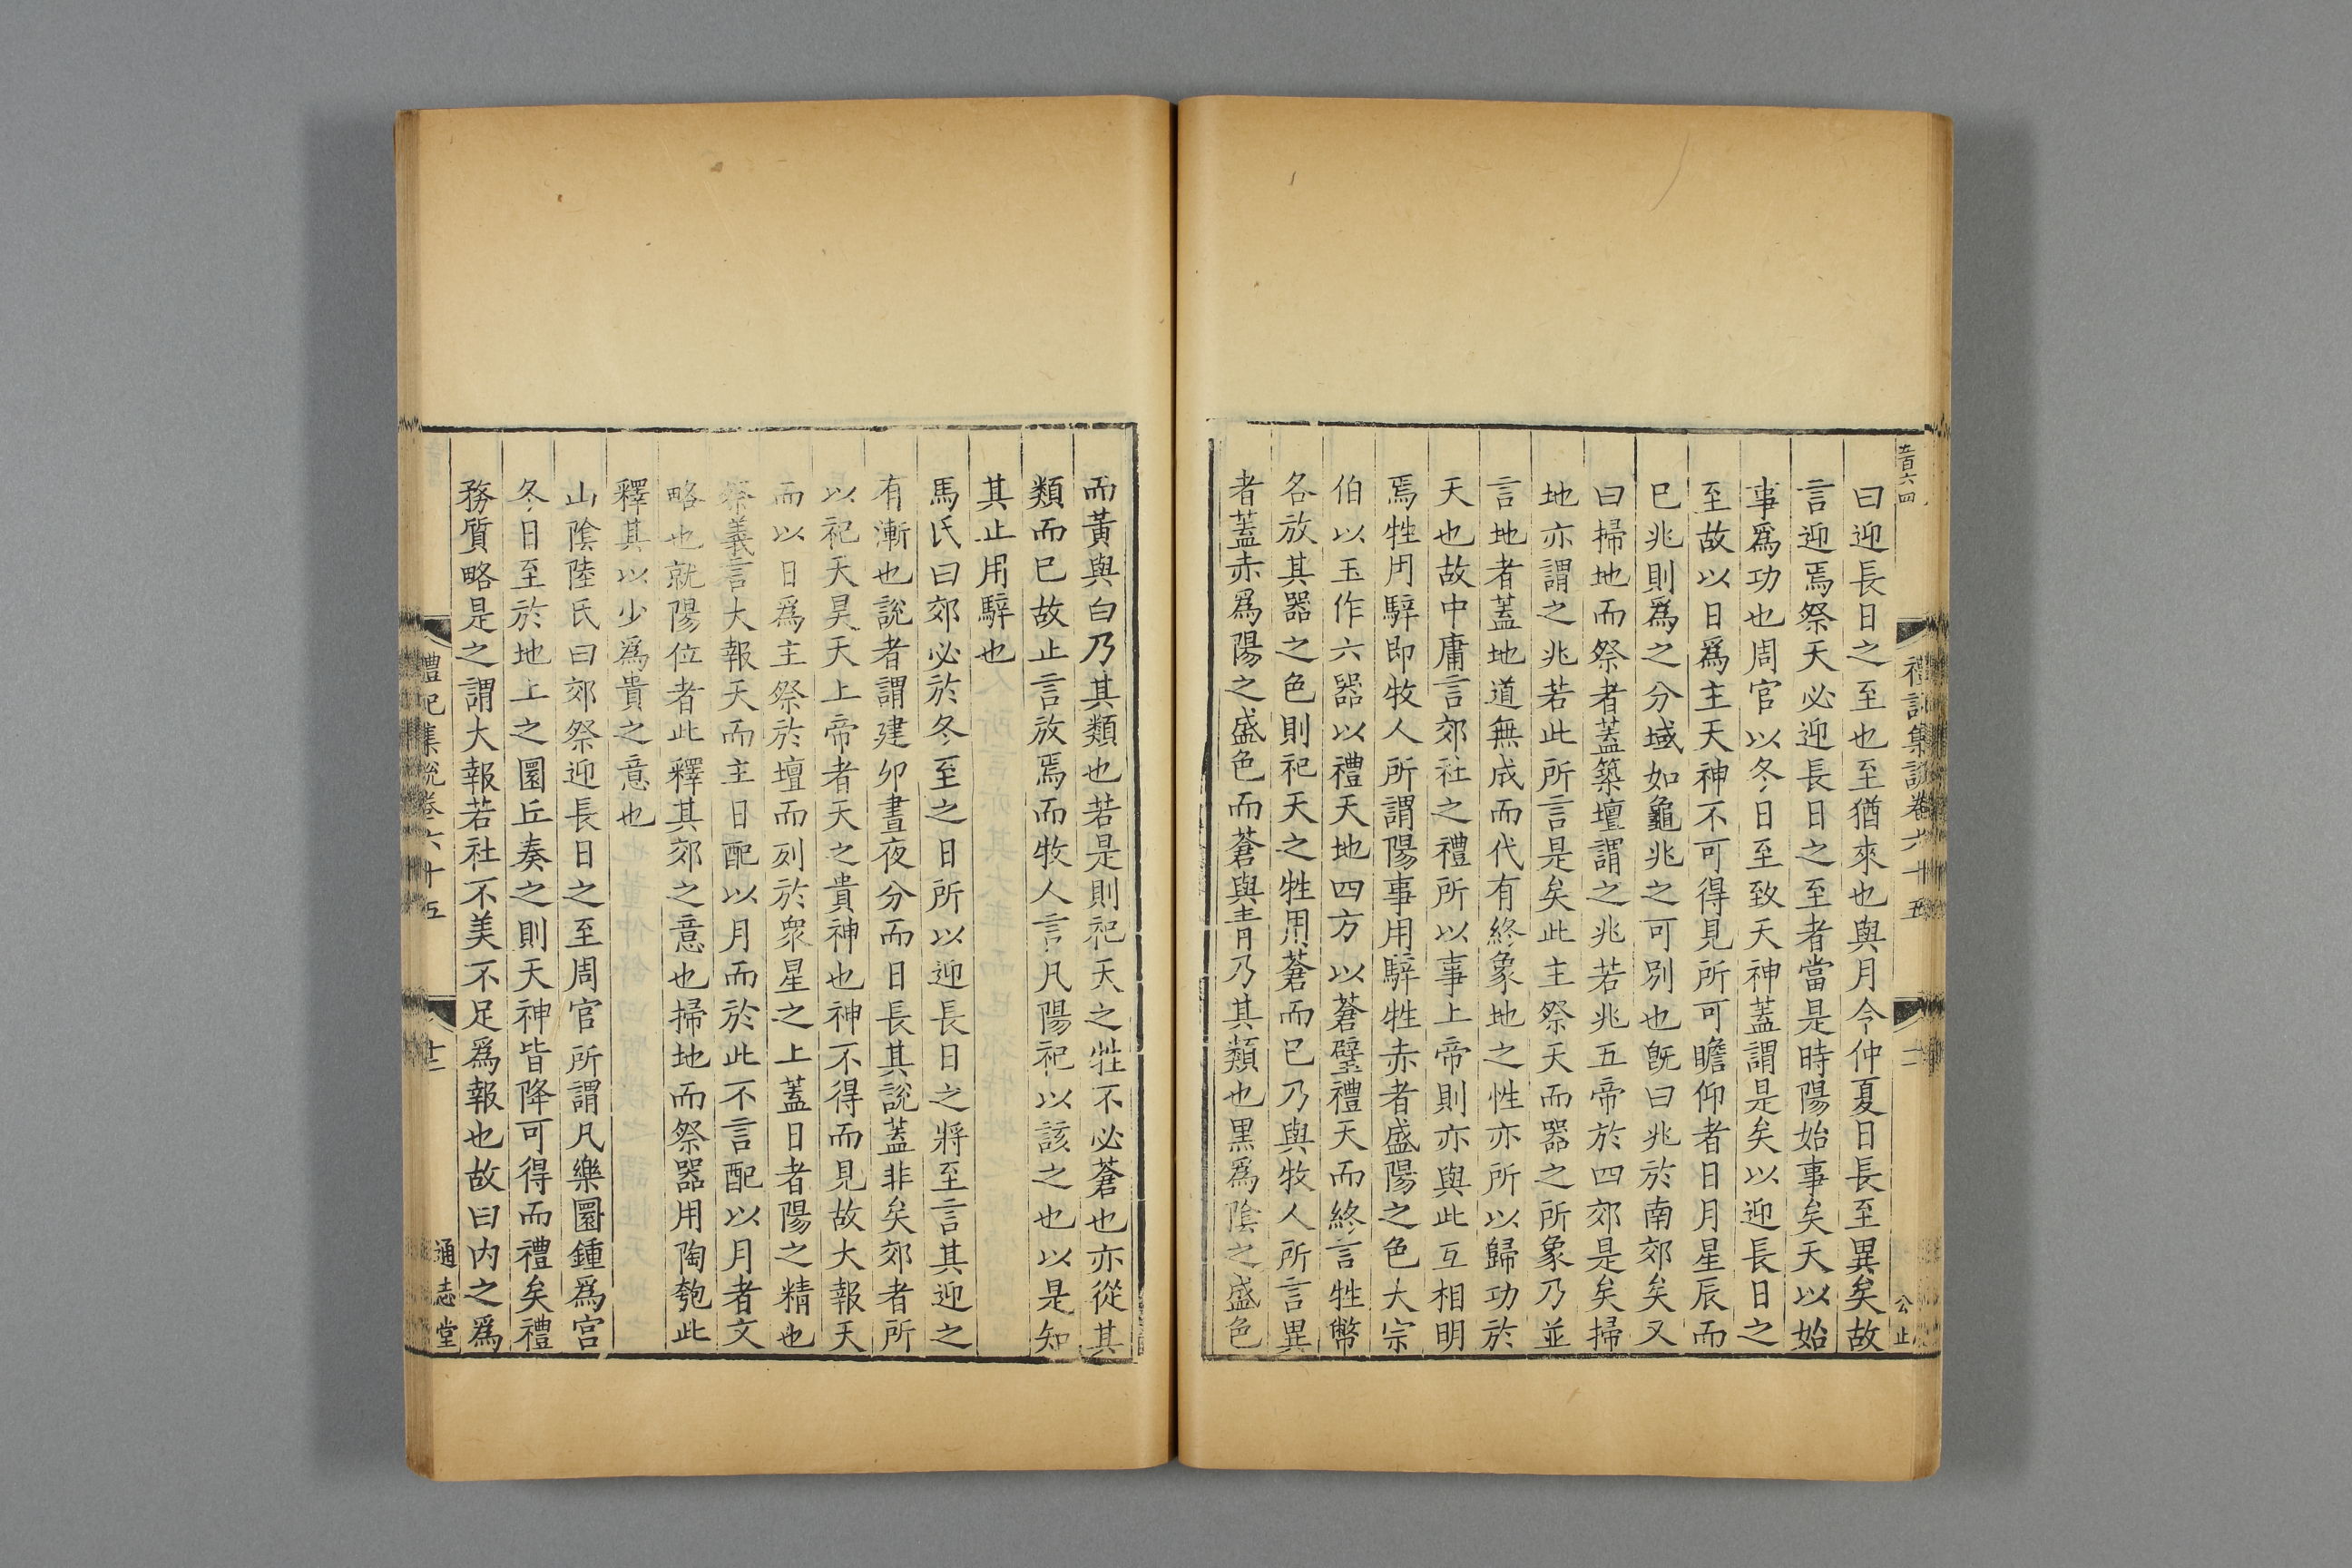 曰迎長日之至也至猶來也與月令仲夏日長至異矣故
言迎焉祭天必迎長日之至者當是時陽始事矣天以始
事爲功也周官以冬日至致天神蓋謂是矣以迎長日之
至故以日爲主天神不可得見所可瞻仰者日月星辰而
巳兆則爲之分域如龜兆之可別也旣曰兆於南郊矣又
曰掃地而祭者蓋築壇謂之兆若兆五帝於四郊是矣掃
地亦謂之兆若此所言是矣此主祭天而器之所象乃並
言地者蓋地道無成而代有終象地之性亦所以歸功於
天也故中庸言郊社之禮所以事上帝則亦與此互相明
焉牲用騂即牧人所謂陽事用騂牲赤者盛陽之色大宗
伯以玉作六器以禮天地四方以蒼璧禮天而終言牲幣
各放其器之色則祀天之牲用蒼而已乃與牧人所言異
者蓋赤爲陽之盛色而蒼與青乃其類也黑爲陰之盛色
禮記集說卷六十五
十二
公止
而黃與白乃其類也若是則祀天之牲不必蒼也亦從其
類而巳故止言放焉而牧人言凡陽祀以該之也以是知
其止用騂也
馬氏曰郊必於冬至之日所以迎長日之將至言其迎之
有漸也說者謂建卯晝夜分而日長其說蓋非矣郊者所
以祀天昊天上帝者天之貴神也神不得而見故大報天
而以日爲主祭於壇而列於衆星之上蓋日者陽之精也
祭義言大報天而主日配以月而於此不言配以月者文
略也就陽位者此釋其郊之意也掃地而祭器用陶匏此
釋其以少爲貴之意也
山陰陸氏曰郊祭迎長日之至周官所謂凡樂圜鍾爲宮
冬日至於地上之圜丘奏之則天神皆降可得而禮矣禮
務質略是之謂大報若社不美不足爲報也故曰内之爲
禮記集說卷六十五
十二
通志堂